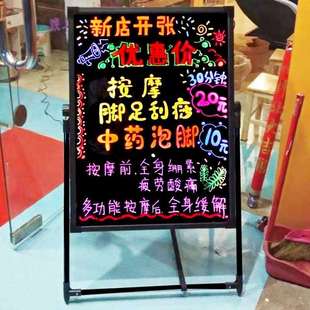 新店开张
优惠价
按摩 30分钟
脚足刮痧 20元
中药泡脚 10元
按摩前,全身绷紧
疲劳酸痛
多功能按摩后,全身缓解